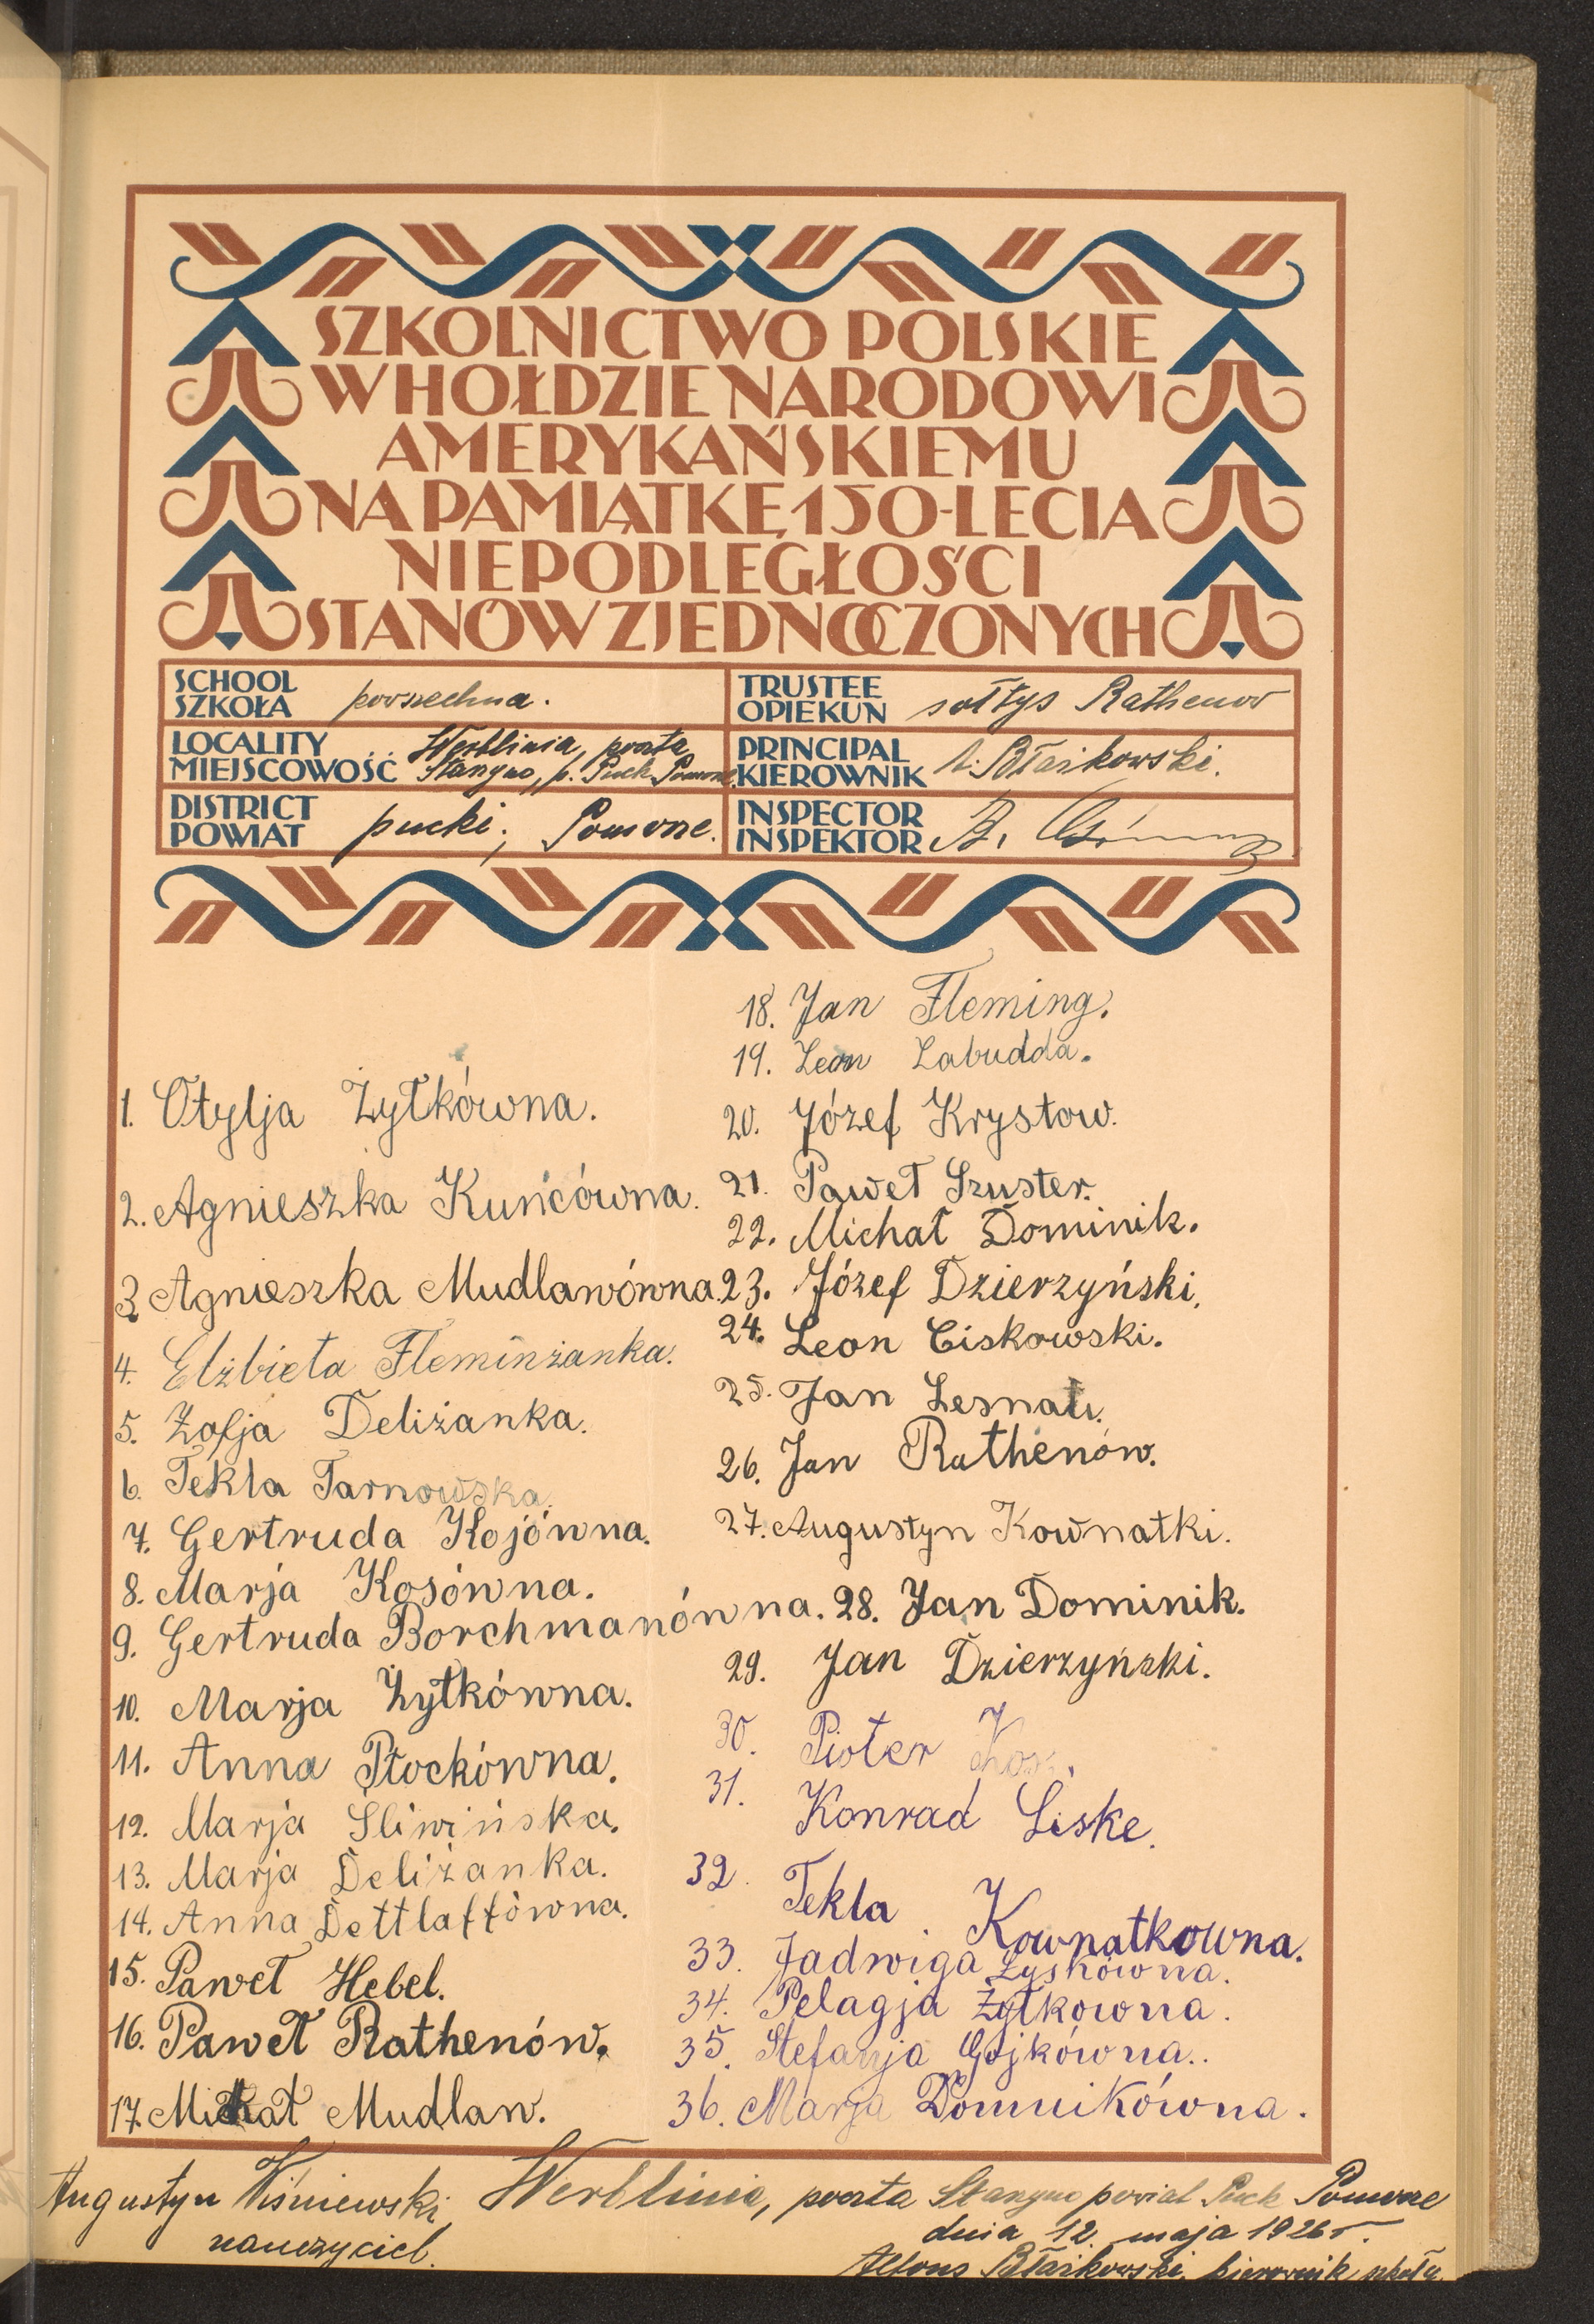 SZKOLNICTWO POLSKIE
W HOŁDZIE NARODOWI
AMERYKAŃSKIEMU
NA PAMIĄTKĘ 150-LECIA
NIEPODLEGŁOŚCI
STANÓW ZJEDNOCZONYCH
SCHOOL
SZKOŁA powszechna.
TRUSTEE
OPIEKUN sołtys Rathenow
LOCALITY
MIEJSCOWOŚĆ Werblinia, poczta
Starzyno, p. Puck Pomorze.
PRINCIPAL
KIEROWNIK A. Błaikowski.
DISTRICT
POWIAT pucki; Pomorze.
INSPECTOR
INSPEKTOR
1. Otylja Żytkówna.
2. Agnieszka Kuńcówna.
3. Agnieszka Mudlawówna.
4. Elżbieta Fleminżanka.
5. Zofja Deliżanka.
6. Tekla Tarnowska.
7. Gertruda Kojówna.
8. Marja Kosówna.
9. Gertruda Borchmanówna.
10. Marja Żytkówna.
11. Anna Płockówna.
12. Marja Śliwińska.
13. Marja Deliżanka.
14. Anna Dettlaffówna.
15. Paweł Hebel.
16. Paweł Rathenów.
17. Michał Mudlaw.
18. Jan Fleming.
19. Leon Labudda.
20. Józef Krystow.
21. Paweł Szuster.
22. Michał Dominik.
23. Józef Dzierzyński.
24. Leon Ciskowski.
25. Jan
26. Jan Rathenów.
27. Augustyn Kownatki.
28. Jan Dominik.
29. Jan Dzierzyński.
30. Pioter Kos.
31. Konrad Liske.
32. Tekla Kownatkowna.
33. Jadwiga Łyskówna.
34. Pelagja Żytkowna.
35. Stefanja Gojkówna..
36. Marja Domnikówna.
Augustyn Wiśniewski, Werblinia, poczta Starzyno powiat Puck Pomorze
nauczyciel. dnia 12. maja 1926 r.
Alfons Błaikowski, kierownik szkoły.